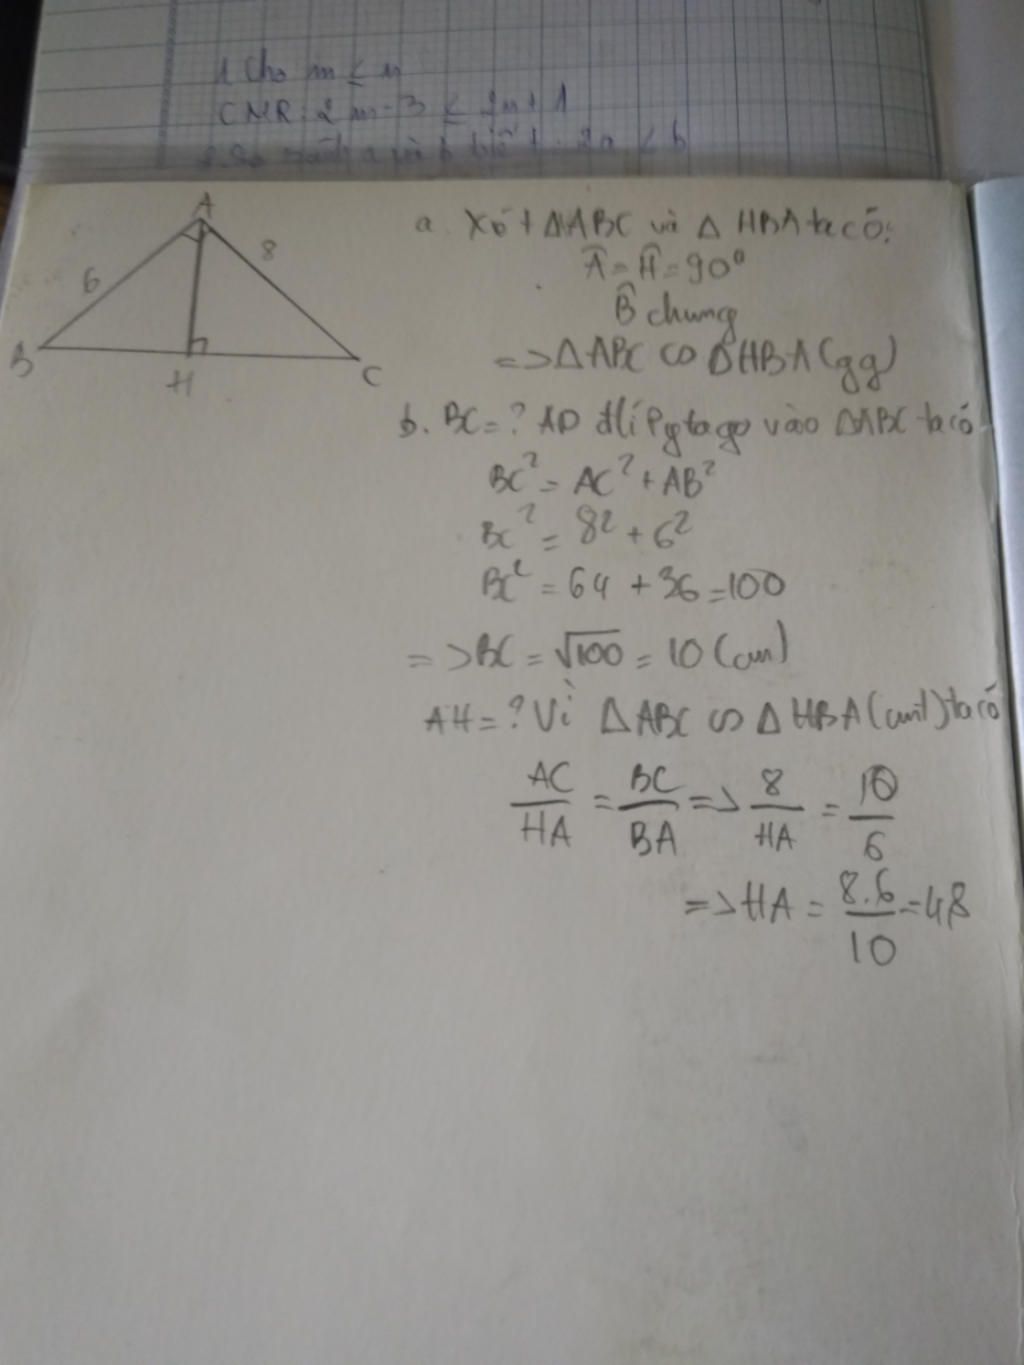 1 Cho m ≤ n
CMR: 2m-3 ≤ 2n+1
a và b biết 2a < b
A
6
8
B
H
C
a. Xét ΔABC và Δ HBA ta có:
Â = Ĥ = 90⁰
B̂ chung
=> ΔABC ∽ ΔHBA (gg)
b. BC = ? AD đlí Pytago vào ΔABC ta có
BC² = AC² + AB²
BC² = 8² + 6²
BC² = 64 + 36 = 100
=> BC = √100 = 10 (cm)
AH = ? Vì ΔABC ∽ ΔHBA (cmt) ta có
AC/HA = BC/BA => 8/HA = 10/6
=> HA = 8.6/10 = 48